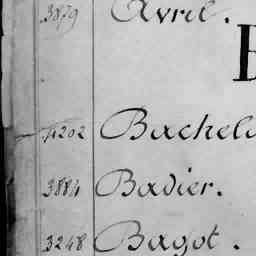 3879 Avril.
B
4202 Bachel
3884 Badier.
3248 Bagot.